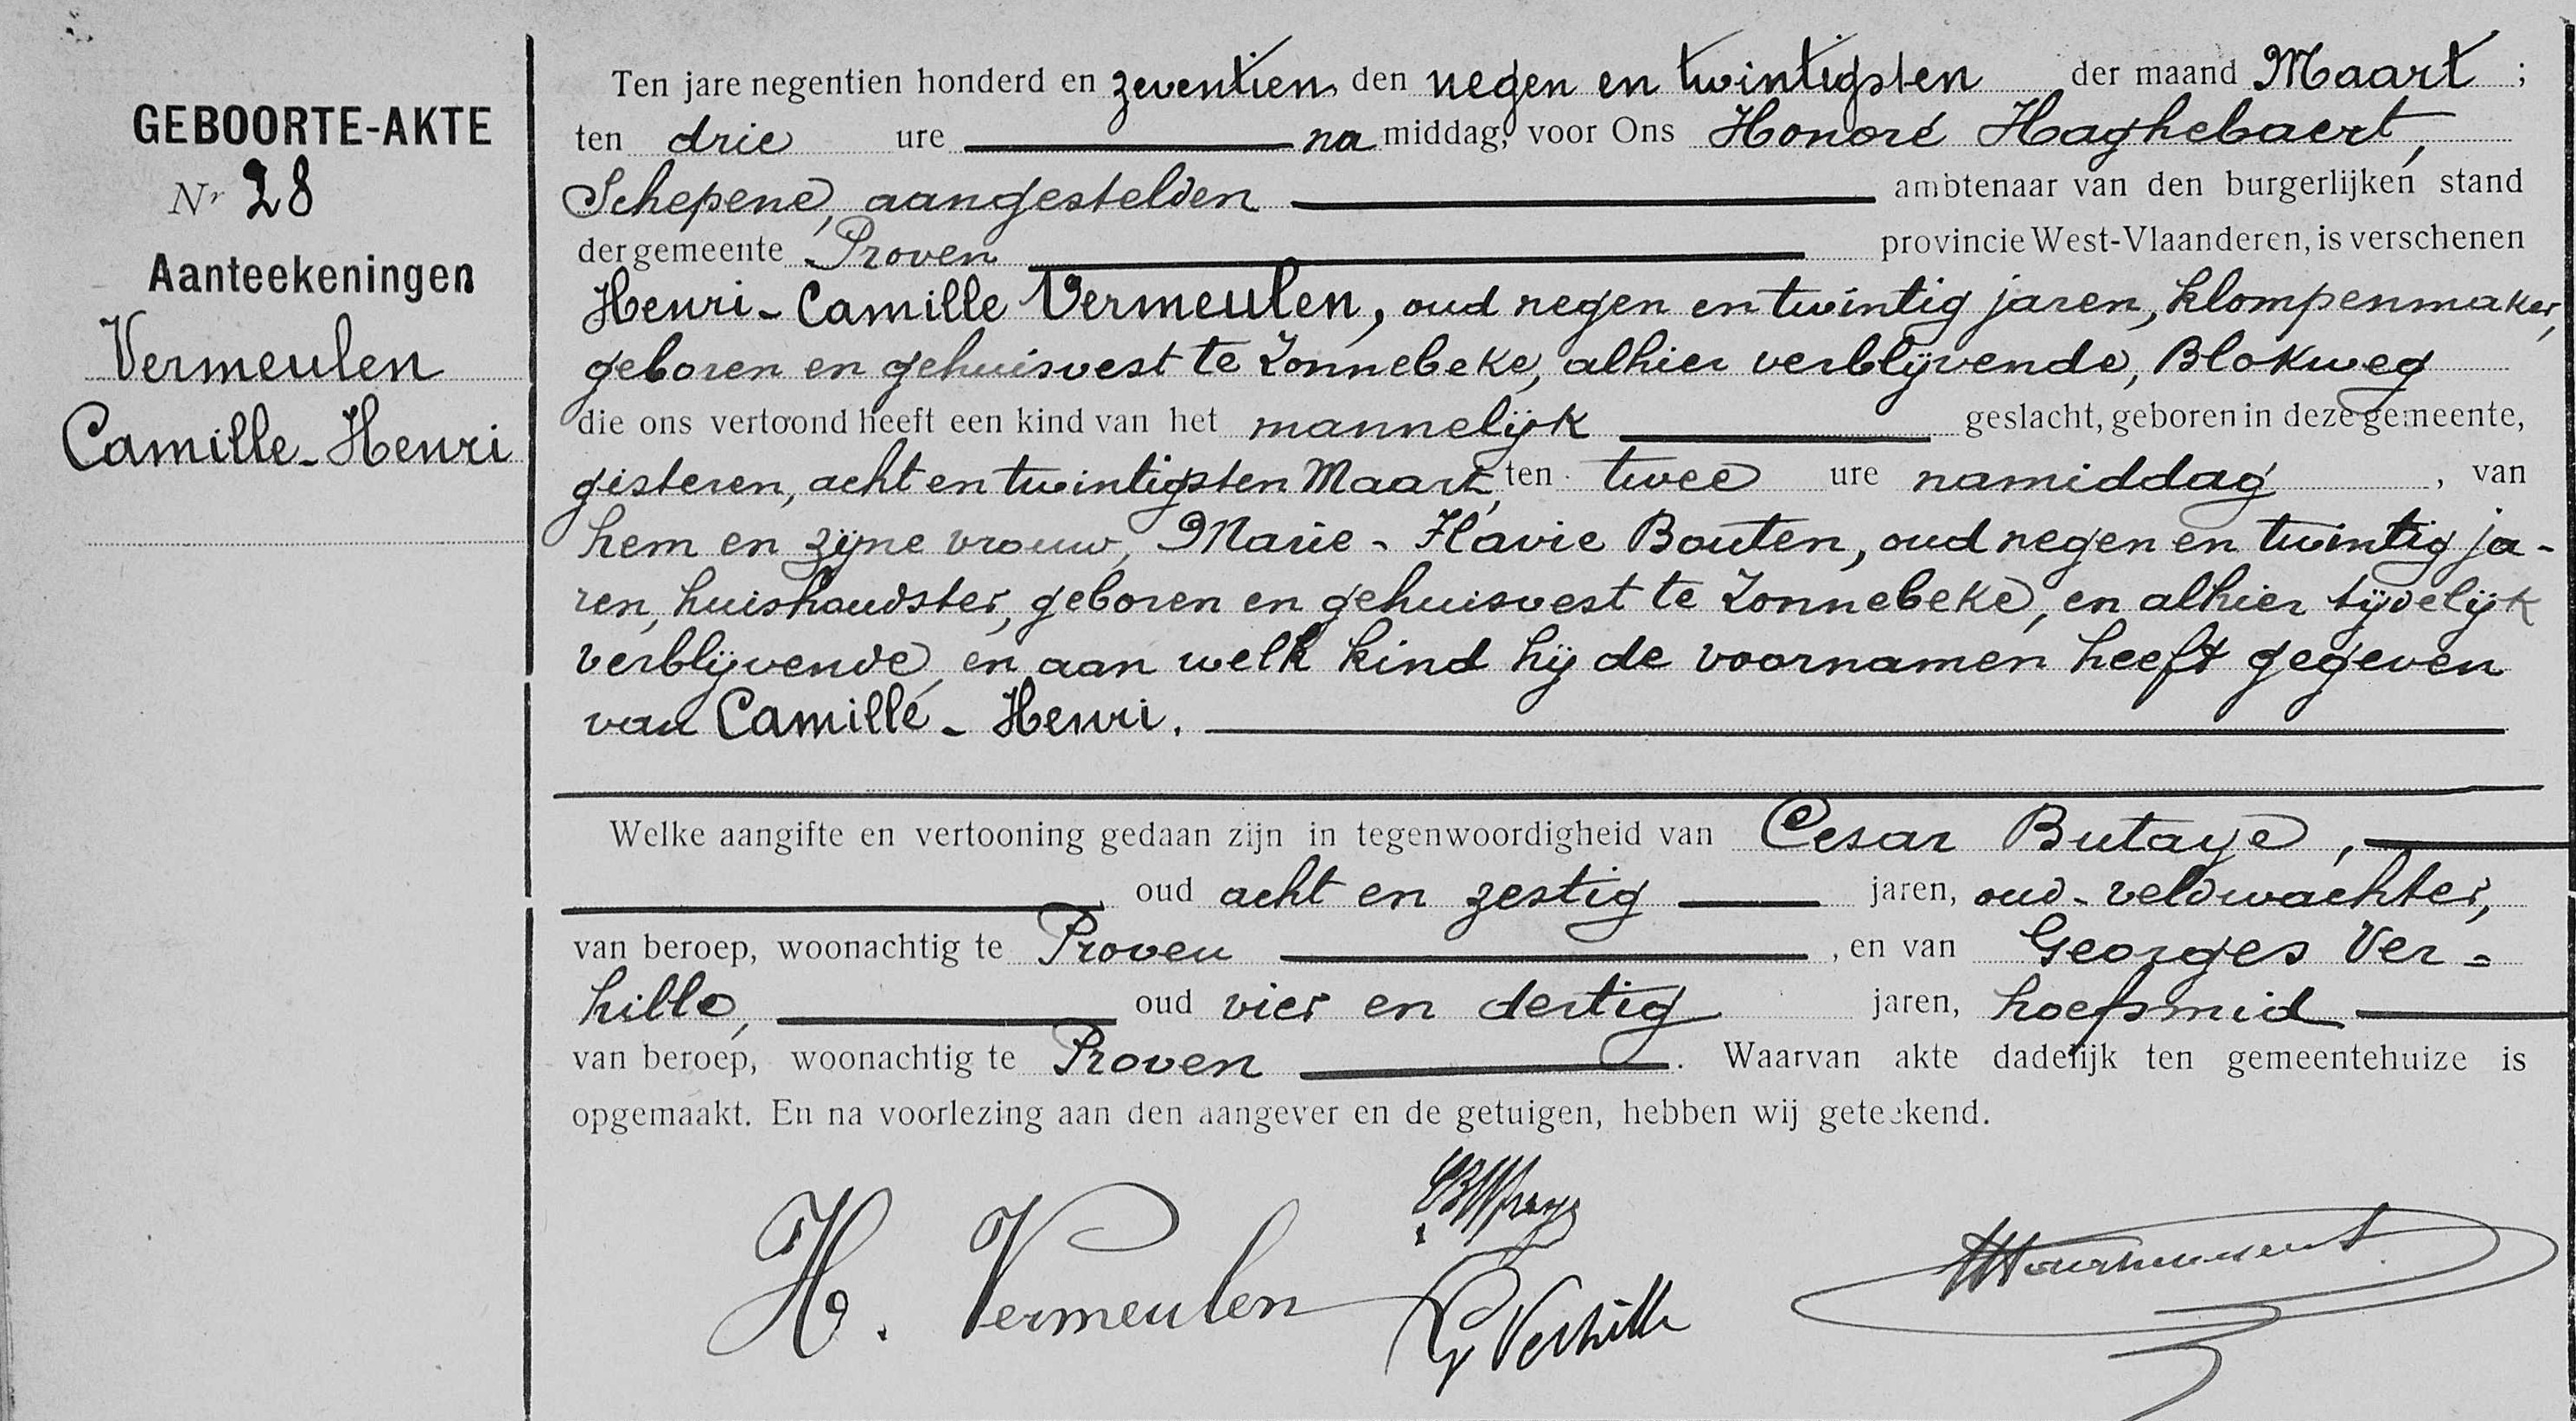 GEBOORTE-AKTE
Nr 28
Aanteekeningen
Vermeulen
Camille-Henri
Ten jare negentien honderd en zeventien, den negen en twintigsten der maand Maart ;
ten drie ure na middag, voor Ons Honoré Haghebaert,
Schepene, aangestelden ambtenaar van den burgerlijken stand
der gemeente Proven provincie West-Vlaanderen, is verschenen
Henri-Camille Vermeulen, oud negen en twintig jaren, klompenmaker,
geboren en gehuisvest te Zonnebeke, alhier verblijvende, Blokweg
die ons vertoond heeft een kind van het mannelijk geslacht, geboren in deze gemeente,
gisteren, acht en twintigsten Maart, ten twee ure namiddag , van
hem en zijne vrouw, Marie-Flavie Bouten, oud negen en twintig ja-
ren, huishoudster, geboren en gehuisvest te Zonnebeke, en alhier tijdelijk
verblijvende, en aan welk kind hij de voornamen heeft gegeven
van Camille-Henri.
Welke aangifte en vertooning gedaan zijn in tegenwoordigheid van Cesar Butaye,
oud acht en zestig jaren, oud-veldwachter,
van beroep, woonachtig te Proven , en van Georges Ver-
hille, oud vier en dertig jaren, hoefsmid
van beroep, woonachtig te Proven . Waarvan akte dadelijk ten gemeentehuize is
opgemaakt. En na voorlezing aan den aangever en de getuigen, hebben wij geteekend.
H. Vermeulen
G Verhille